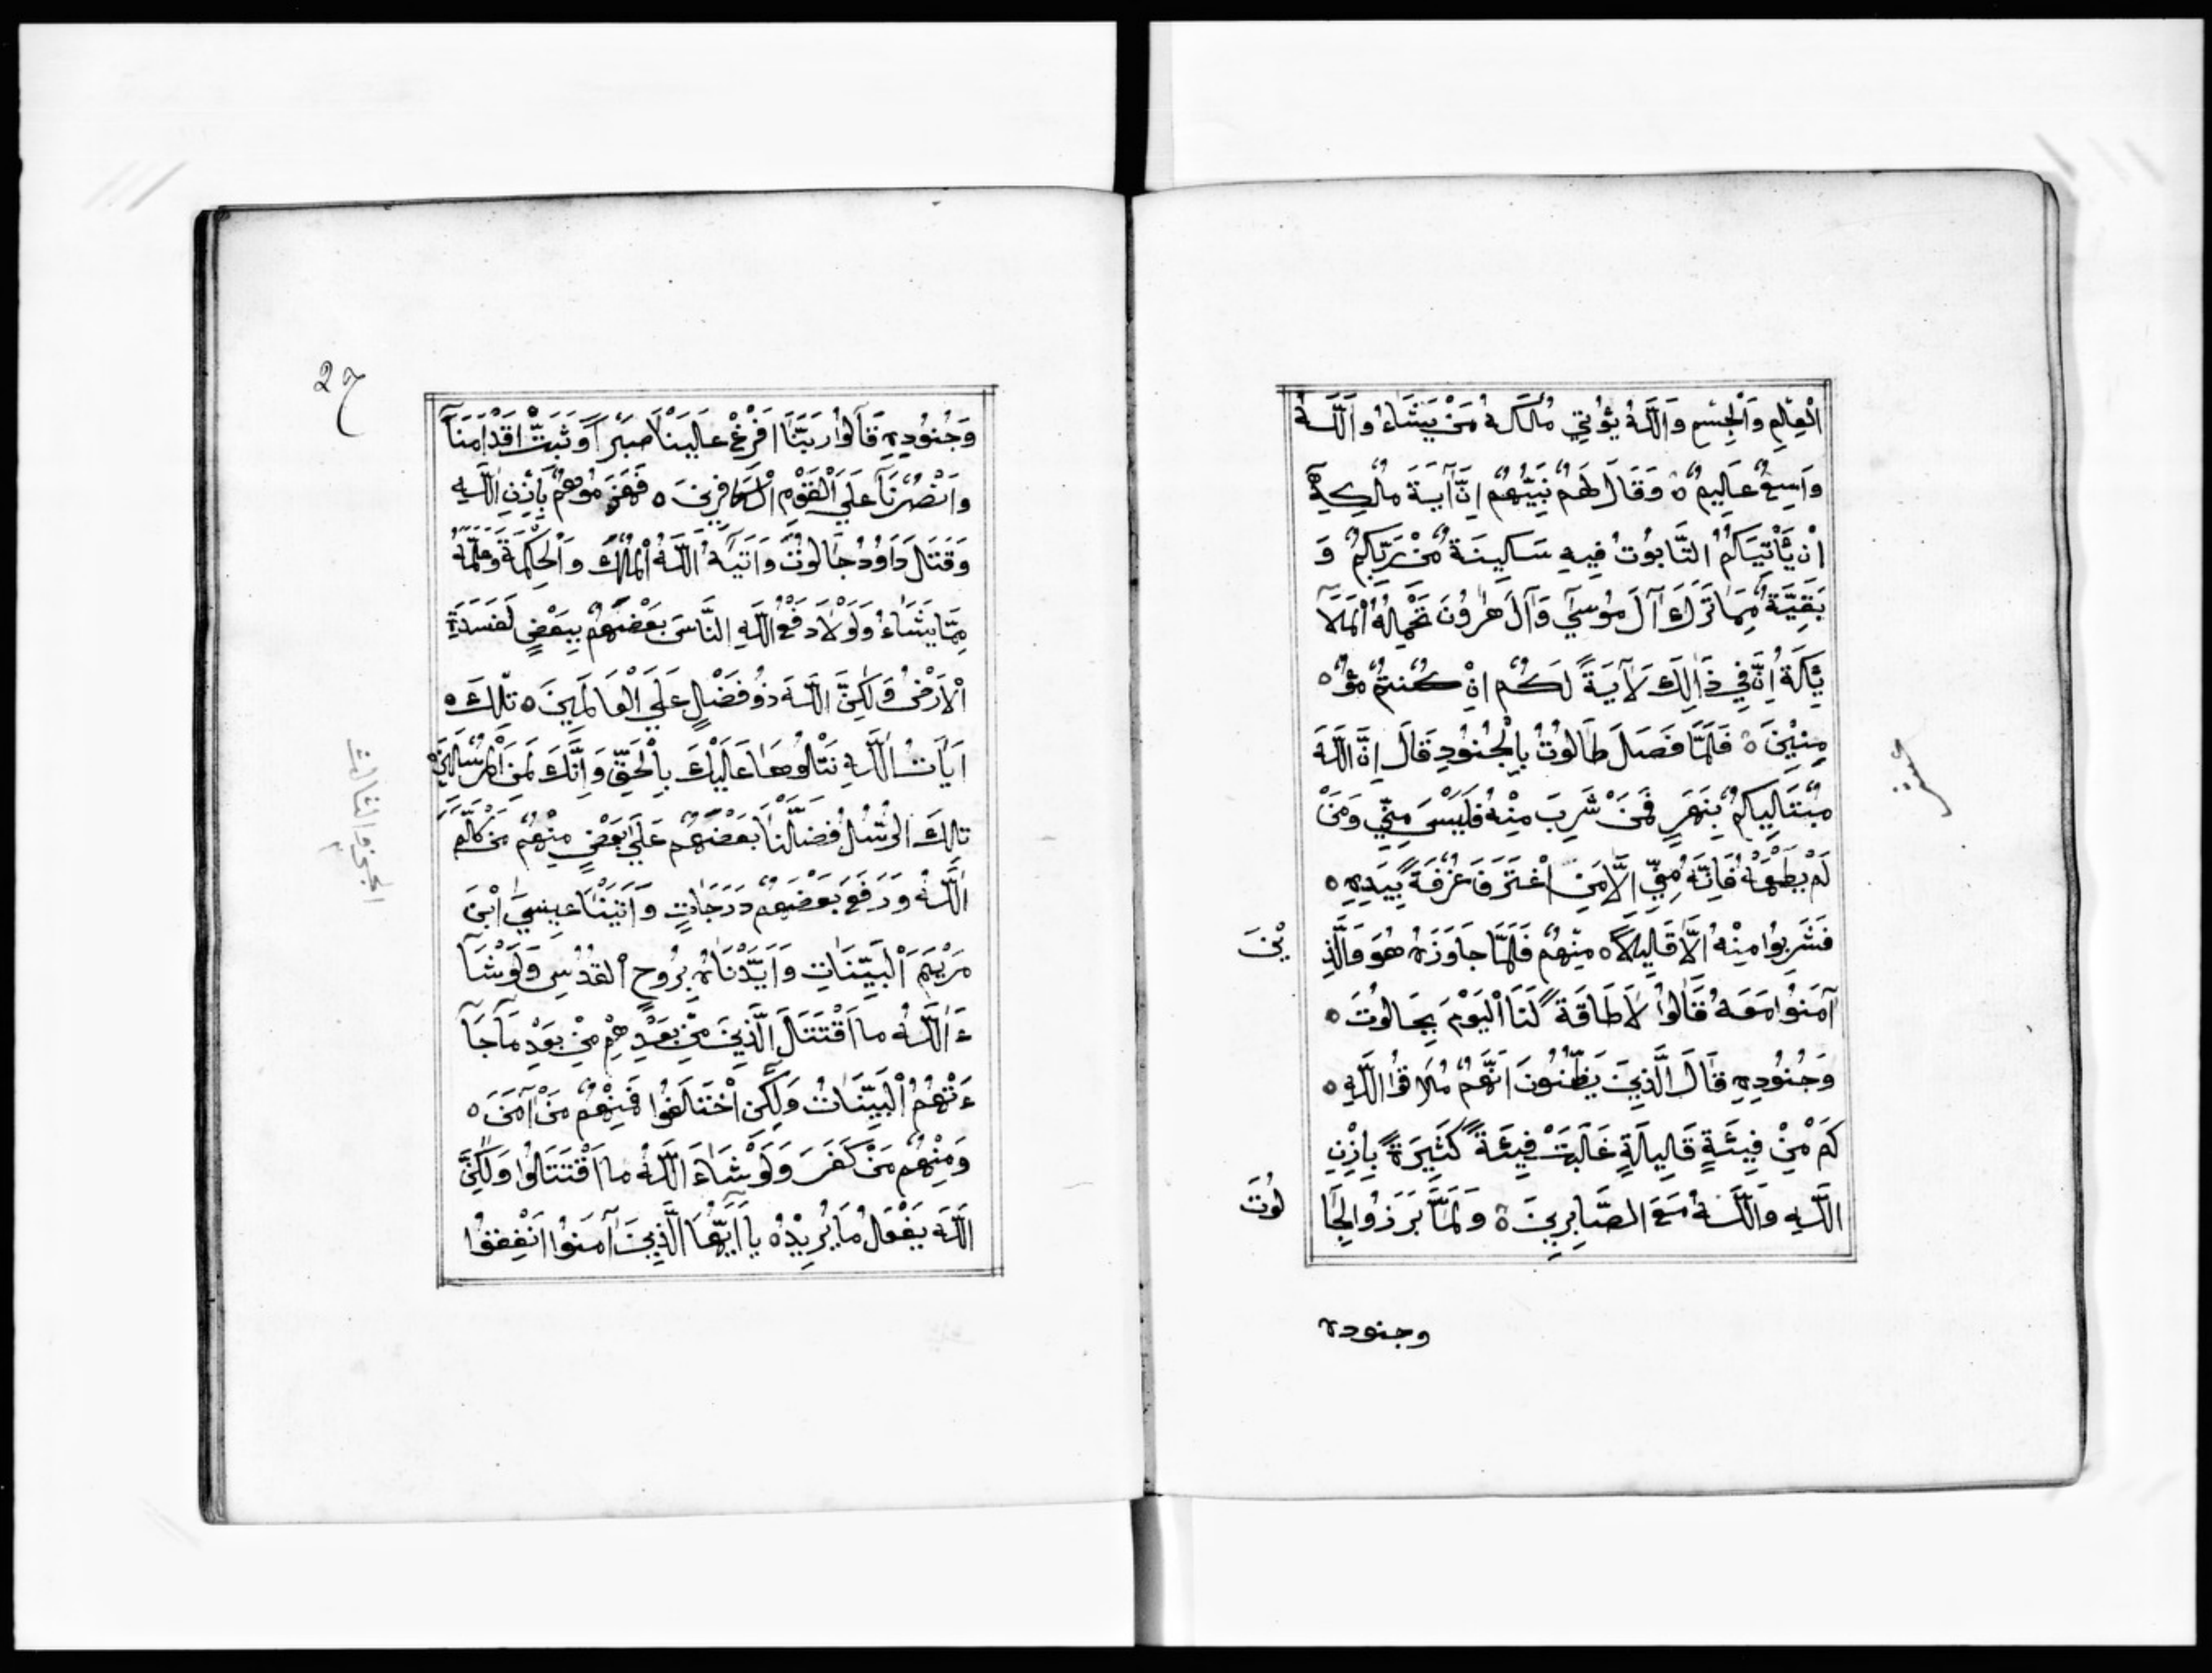 الْعِلْمِ وَالْجِسْمِ وَاَللّٰهُ يُؤْتِي مُلْكَهُ مَنْ يَشَاءُ وَاَللّٰهُ
وَاسِعٌ عَلِيمٌ ٥ وَقَالَ لَهُمْ نَبِيُّهُمْ اِنَّ آيَةَ مُلْكِهِ
اَنْ يَّأْتِيَكُمُ التَّابُوتُ فِيهِ سَكِينَةٌ مِّنْ رَّبِّكُمْ وَ
بَقِيَّةٌ مِمَّا تَرَكَ آلَ مُوسَي وَآلَ هٰرُونَ تَحْمِلُهُ الْمَلَآ
ئِكَةُ اِنَّ فِي ذَالِكَ لَآيَةً لَكُمْ اِنْ كُنْتُمْ مُؤْ ٥
مِنِينَ ٥ فَلَمَّا فَصَلَ طَالُوتُ بِالْجُنُودِ قَالَ اِنَّ اللّٰهَ
مُبْتَلِيكُمْ بِنَهَرٍ فَمَنْ شَرِبَ مِنْهُ فَلَيْسَ مِنِّي وَمَنْ
لَمْ يَطْعَمْهُ فَاِنَّهُ مِنِّي اِلَّا مَنِ اغْتَرَفَ غُرْفَةً بِيَدِهِ ٥
فَشَرِبُوا مِنْهُ اِلَّا قَلِيلًا ٥ مِنْهُمْ فَلَمَّا جَاوَزَهُ هُوَ وَالَّذِ
يْنَ
آمَنُوا مَعَهُ قَالُوا لَا طَاقَةَ لَنَا الْيَوْمَ بِجَالُوتَ ٥
وَجُنُودِهِ قَالَ الَّذِينَ يَظُنُّونَ اَنَّهُمْ مُلَاقُوا اللّٰهِ ٥
كَمْ مِنْ فِئَةٍ قَلِيلَةٍ غَلَبَتْ فِئَةً كَثِيرَةً بِاِذْنِ
اللّٰهِ وَاللّٰهُ مَعَ الصَّابِرِينَ ٥ وَلَمَّا بَرَزُوا لِجَا
لُوتَ
وجنوده
27
وَجُنُودِهِ قَالُوا رَبَّنَا اَفْرِغْ عَلَيْنَا صَبْرًا وَثَبِّتْ اَقْدَامَنَا
وَانْصُرْنَا عَلَي الْقَوْمِ الْكَافِرِينَ ٥ فَهَزَمُوهُمْ بِاِذْنِ اللّٰهِ
وَقَتَلَ دَاوُدُ جَالُوتَ وَاَتَيهُ اللّٰهُ الْمُلْكَ وَالْحِكْمَةَ وَعَلَّمَهُ
مِمَّا يَشَاءُ وَلَوْلَا دَفْعُ اللّٰهِ النَّاسَ بَعْضَهُمْ بِبَعْضٍ لَفَسَدَتِ
الْاَرْضُ وَلٰكِنَّ اللّٰهَ ذُو فَضْلٍ عَلَي الْعَالَمِينَ ٥ تِلْكَ ٥
اَيَاتُ اللّٰهِ نَتْلُوهَا عَلَيْكَ بِالْحَقِّ وَاِنَّكَ لَمِنَ الْمُرْسَلِينَ
تِلْكَ الرُّسُلُ فَضَّلْنَا بَعْضَهُمْ عَلَي بَعْضٍ مِنْهُمْ مَنْ كَلَّمَ
اللّٰهُ وَرَفَعَ بَعْضَهُمْ دَرَجَاتٍ وَاَتَيْنَا عِيسَي ابْنَ
مَرْيَمَ الْبَيِّنَاتِ وَاَيَّدْنَاهُ بِرُوحِ الْقُدُسِ وَلَوْ شَآ
ءَ اللّٰهُ مَا اقْتَتَلَ الَّذِينَ مِنْ بَعْدِهِمْ مِنْ بَعْدِ مَا جَآ
ءَتْهُمُ الْبَيِّنَاتُ وَلٰكِنِ اخْتَلَفُوا فَمِنْهُمْ مَنْ آمَنَ ٥
وَمِنْهُمْ مَنْ كَفَرَ وَلَوْ شَاءَ اللّٰهُ مَا اقْتَتَلُوا وَلٰكِنَّ
اللّٰهَ يَفْعَلُ مَا يُرِيدُ ٥ يَا اَيُّهَا الَّذِينَ آمَنُوا اَنْفِقُوا
الجزو الثالث